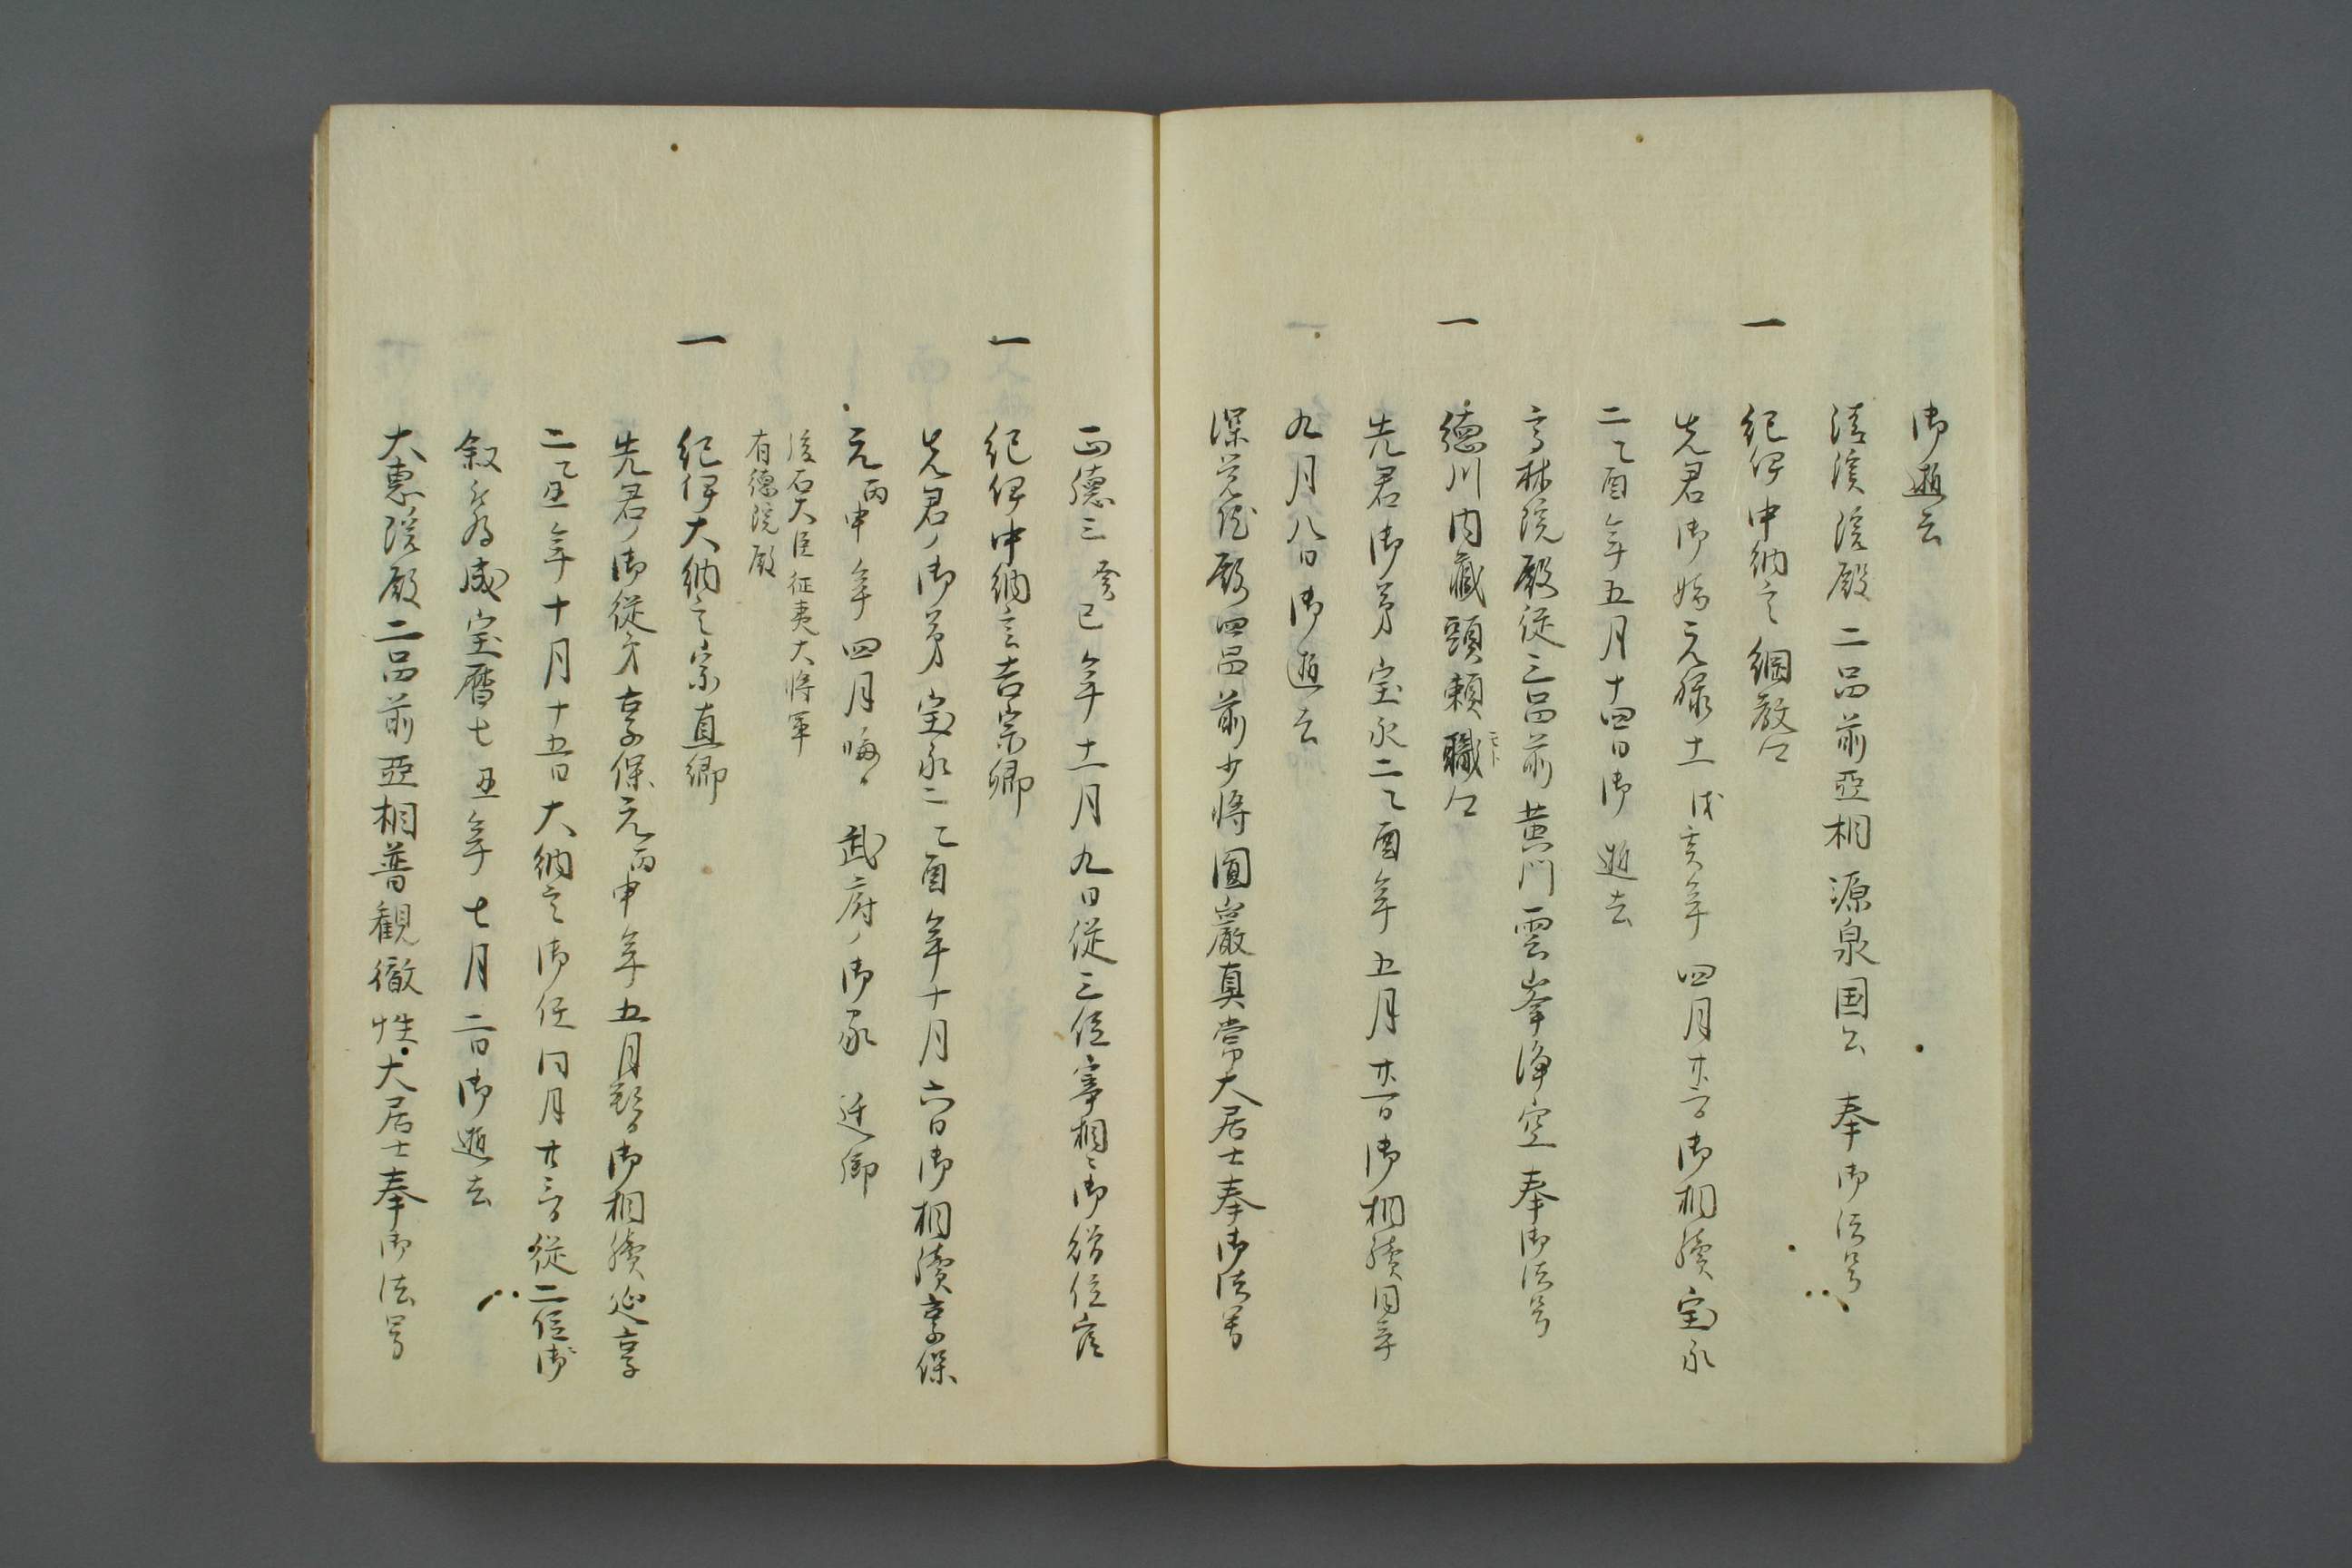 御逝去
清渓院殿二品前亜相源泉国公 奉御法号
一 紀伊中納言綱教公
先君御嫡元禄十一戊寅年四月廿二日御相続宝永
二乙酉年五月十四日御逝去
高林院殿従三品前黄門雲峯浄空奉御法号
一 徳川内蔵頭頼職公
モト
先君御弟宝永二乙酉年五月廿一日御相続同年
九月八日御逝去
深覚院殿四品前少将圓巖真常大居士奉御法号
正徳三癸巳年十一月九日従三位宰相ニ御贈位官
一 紀伊中納言吉宗卿
先君ノ御弟宝永二乙酉年十月六日御相続享保
元丙申年四月晦日 武府ノ御家 迁御
後右大臣征夷大将軍
有徳院殿
一 紀伊大納言宗直卿
先君ノ御従弟享保元丙申年五月朔日御相続延享
二乙丑年十月十五日大納言御任同月廿三日従二位御
叙 宝暦七丑年七月二日御逝去
大惠院殿二品前亞相普観徹性大居士奉御法号